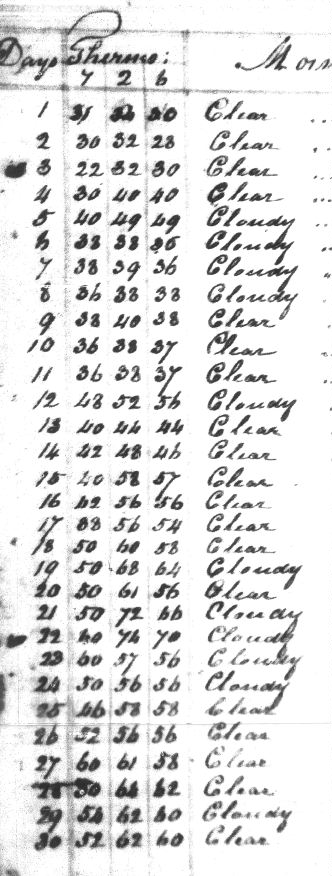 Days Thermo: Morn
7 2 6
1 31 32 30 Clear ..
2 30 32 28 Clear ..
3 22 32 30 Clear ...
4 30 40 40 Clear ...
5 40 49 49 Cloudy ..
6 38 38 36 Cloudy
7 38 39 36 Cloudy
8 36 38 38 Cloudy
9 38 40 38 Clear
10 36 38 37 Clear
11 36 38 37 Clear
12 48 52 56 Cloudy
13 40 44 44 Clear
14 42 48 46 Clear
15 40 58 57 Clear
16 42 56 56 Clear
17 38 56 54 Clear
18 50 60 58 Clear
19 50 68 64 Cloudy
20 50 61 56 Clear
21 50 72 66 Cloudy
22 60 74 70 Cloudy
23 60 57 56 Cloudy
24 50 56 56 Cloudy
25 46 58 58 Clear
26 52 56 56 Clear
27 60 61 58 Clear
28 50 64 62 Clear
29 54 62 60 Cloudy
30 52 62 60 Clear